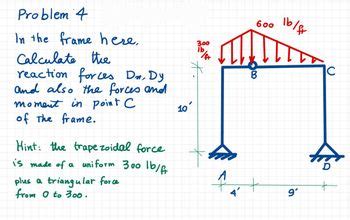 Problem 4
In the frame here,
Calculate the
reaction forces Dx, Dy
and also the forces and
moment in point C
of the frame.
Hint: the trapezoidal force
is made of a uniform 300 lb/ft
plus a triangular force
from 0 to 300.
600 lb/ft
300 lb/ft
B
C
10'
A
D
4'
9'